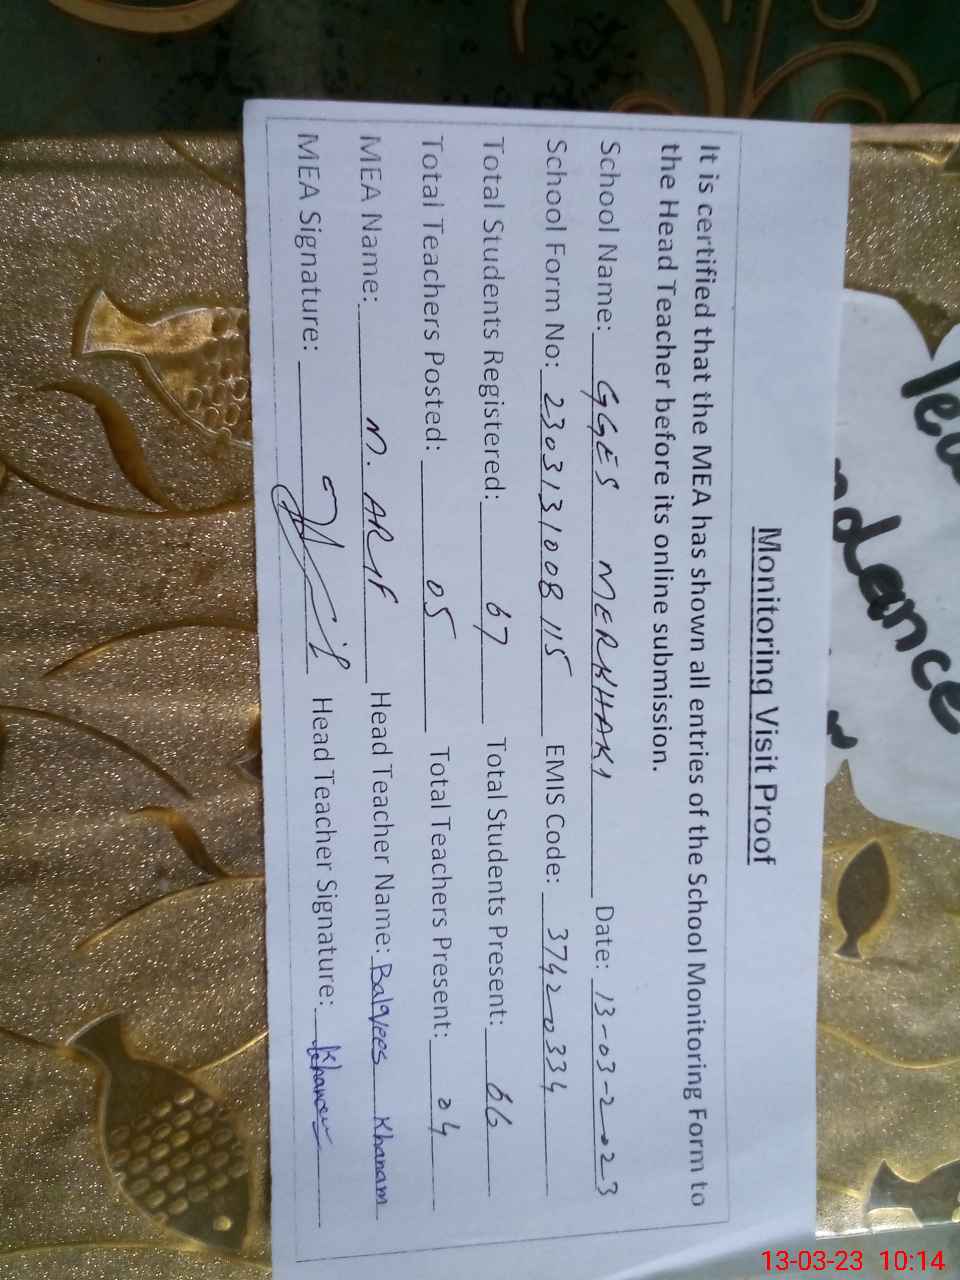 Monitoring Visit Proof
It is certified that the MEA has shown all entries of the School Monitoring Form to
the Head Teacher before its online submission.
School Name: GGES MERKHAKI Date: 13-03-2023
School Form No: 230313100B115 EMIS Code: 37420334
Total Students Registered: 67 Total Students Present: 66
Total Teachers Posted: 05 Total Teachers Present: 04
MEA Name: M. ARIF Head Teacher Name: Balqees Khanam
MEA Signature: Head Teacher Signature: Khanam
13-03-23 10:14